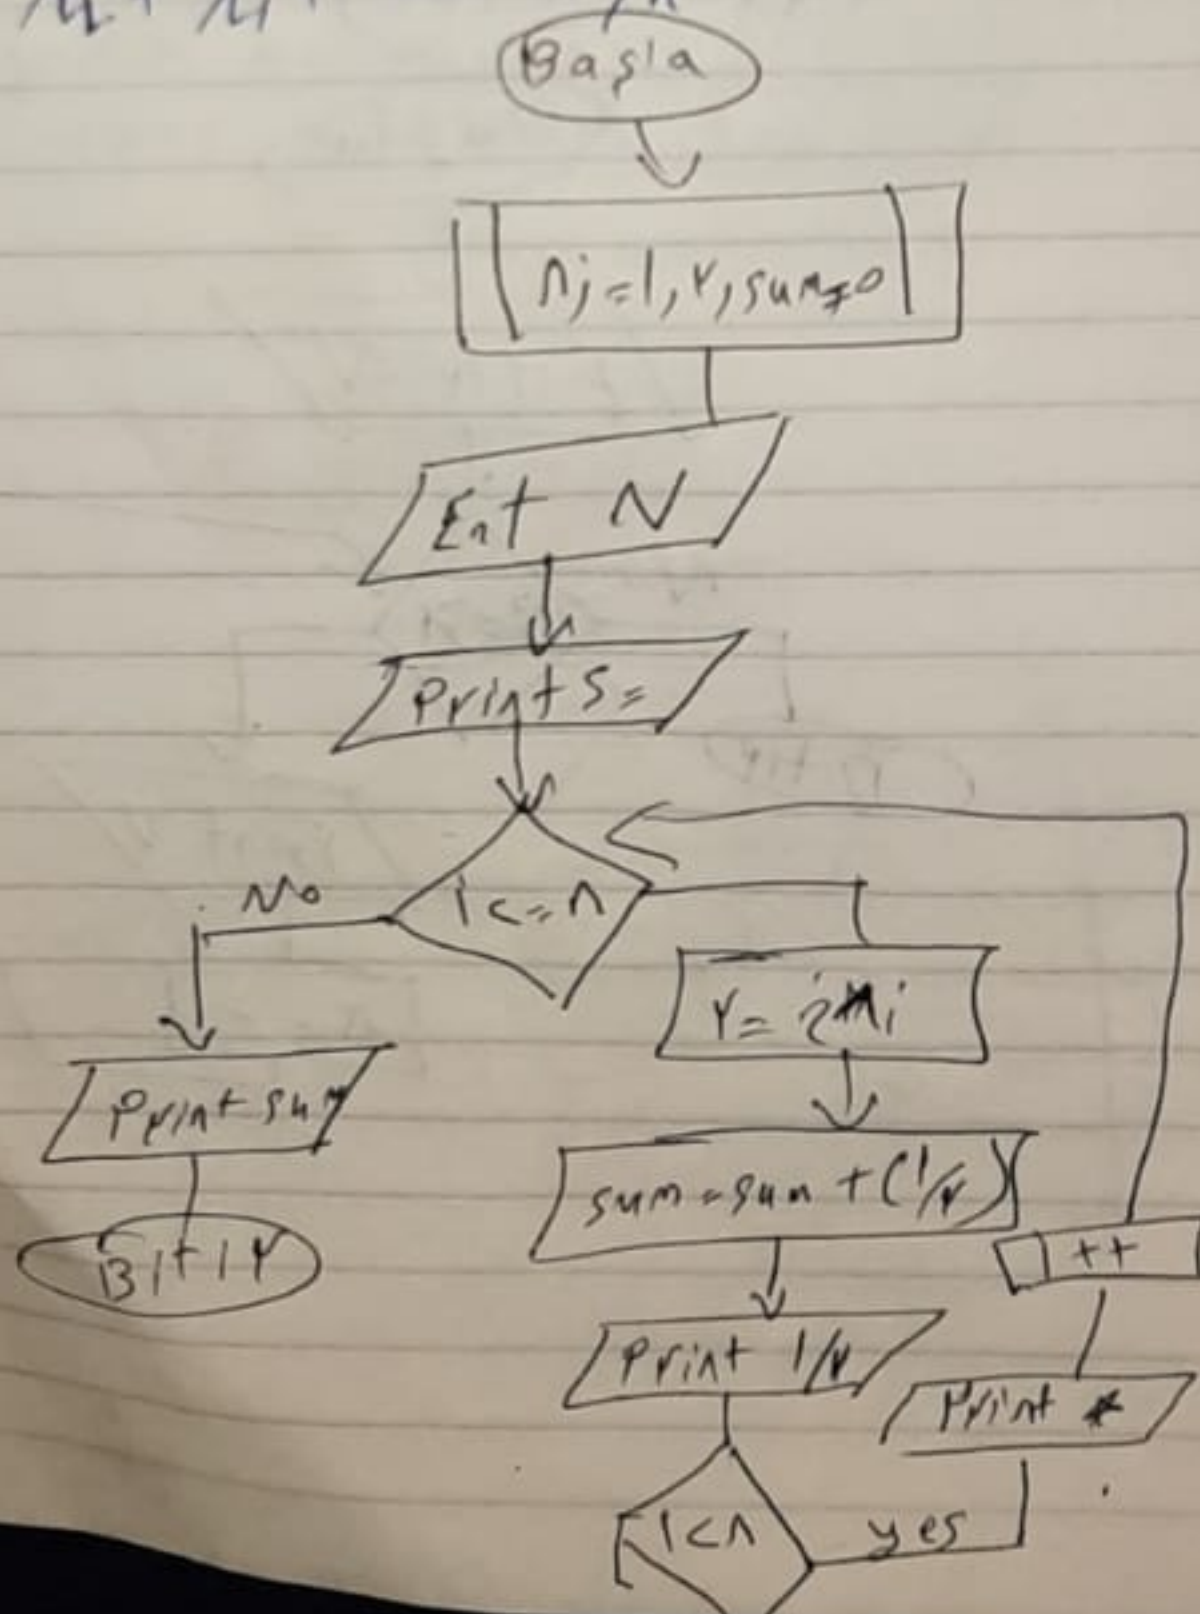 Başla
n,i=1,r,sum=0
Ent N
Print S=
i<=n
No
r=i*i
Print sum
sum=sum+(1/r)
Bitir
++
Print 1/r
Print *
i<n
yes